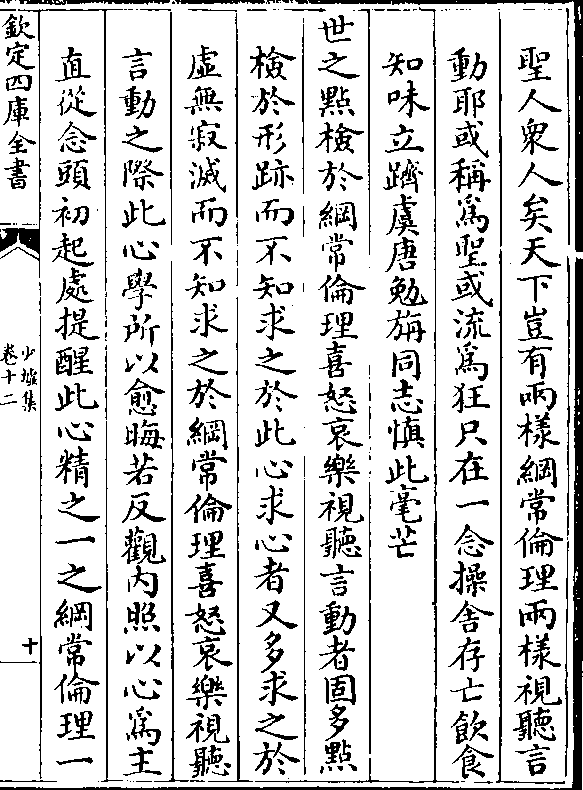 聖人衆人矣天下豈有兩樣綱常倫理兩樣視聽言
動耶或稱爲聖或流爲狂只在一念操舍存亡飲食
知味立躋虞唐勉旃同志慎此毫芒
世之點檢於綱常倫理喜怒哀樂視聽言動者固多點
檢於形跡而不知求之於此心求心者又多求之於
虛無寂滅而不知求之於綱常倫理喜怒哀樂視聽
言動之際此心學所以愈晦若反觀内照以心爲主
直從念頭初起處提醒此心精之一之綱常倫理一
欽定四庫全書
少墟集
卷十二
十